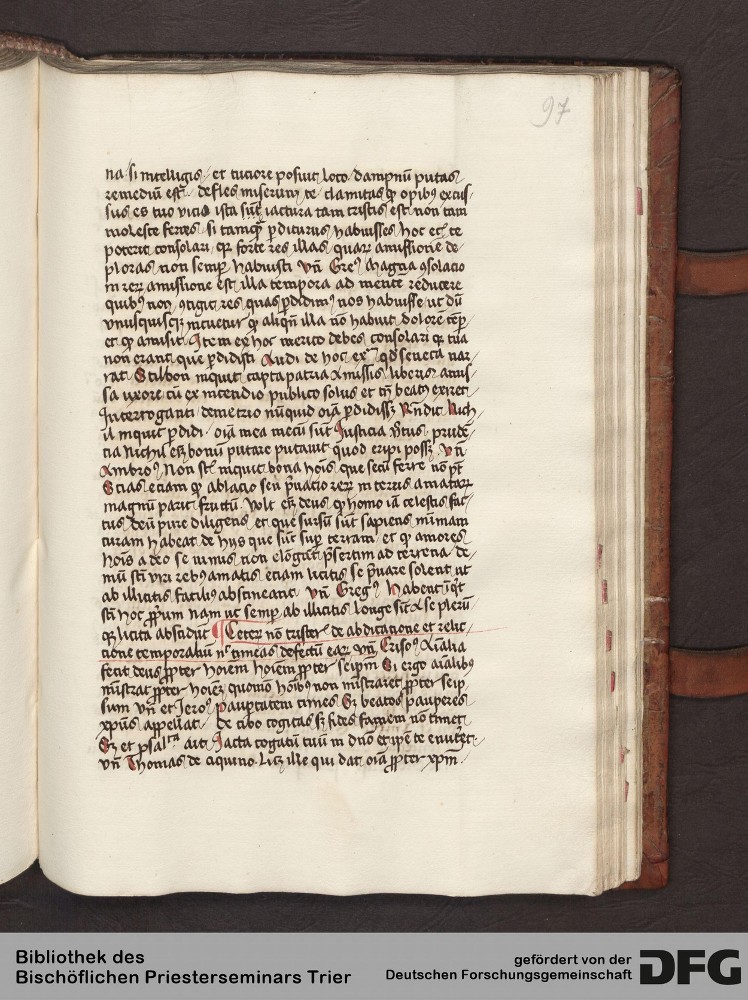 97
na si intelligis et tuciore posuit loco dampnū putas
remediū est defles miserum te clamitas qͥ opibꝰ excus
sus es tuo vicio ista sine iactura tam tristis est non tam
moleste ferres si tamqͣ ꝑditurus habuisses hoc et te
poterit consolari qꝛ forte res illas quaꝝ amissione de
ploras non semꝑ habuisti Vn̄ Greꝰ Magna ꝯsolacio
in reꝝ amissione est illa tempora ad mentē reducere
quibꝰ non ꝯtigit res quas ꝑdidimꝰ nos habuisse ut dū
vnusquisqꝫ intuetur ꝙ aliqn̄ illa nō habuit dolorē tēpet
et ꝙ amisit Item ex hoc merito debes consolari qꝛ tua
non erant que ꝑdidisti Audi de hoc exᵐ qd̄ seneca nar
rat Stilbon inquit capta patria amissis liberis amis
sa uxore cū ex incendio publico solus et tn̄ beatꝰ exiret
Interroganti demetrio nūquid oīa ꝑdidissꝫ Rn̄dit Nich
il inquit ꝑdidi oīa mea mecū sūt Iusticia v̄tus prudē
cia nichil eēꝫ bonū putare putauit quod eripi possꝫ Vn̄
Ambroꝰ Non st̄ inquit bona hoīs que secū ferre nō pt̄
Scias eciam ꝙ ablacio seu p̄uacio reꝝ in terris amataꝝ
magnū parit fructū Volt eīꝫ deus ꝙ homo iā celestis fac
tus deū pure diligens et que sursū sūt sapiens minimam
curam habeat de hys que sūt suꝑ terram et ꝙ amores
hoīs a deo se minus non elōgāt p̄sertim ad terrena de
mū st̄i viri rebꝰ amatis etiam licitis se p̄uare solent ut
ab illicitis faciliꝰ abstineant Vn̄ Gregꝰ habent
st̄i hoc ꝓprium nam ut semꝑ ab illicitis longe sint a se pleru
qꝫ licita abscidūt Ceteꝝ nō tristeris de abdicatione et relic
tione temporaliū nͨ timeas defectū eaꝝ Vn̄ Crisoꝰ Aīalia
fecit deus ꝓpter hoīem hoīem ꝓpter seipm̄ Si ergo aīalibꝰ
mīstrat ꝓpter hoīeꝫ quomō hoībꝰ non mīstraret ꝓpter seip
sum Vn̄ et Ieroꝰ paup̄tatem times Sꝫ beatos pauperes
xp̄us appellat De cibo cogitas sꝫ fides famem nō timet
Sꝫ et psalᵗᵃ ait Iacta cogatū tuū in dn̄o et ip̄e te enutͥet
Vn̄ Thomas de aquino Licꝫ ille qui dat oīa ꝓpter xp̄m
Bibliothek des
Bischöflichen Priesterseminars Trier
gefördert von der
Deutschen Forschungsgemeinschaft
DFG